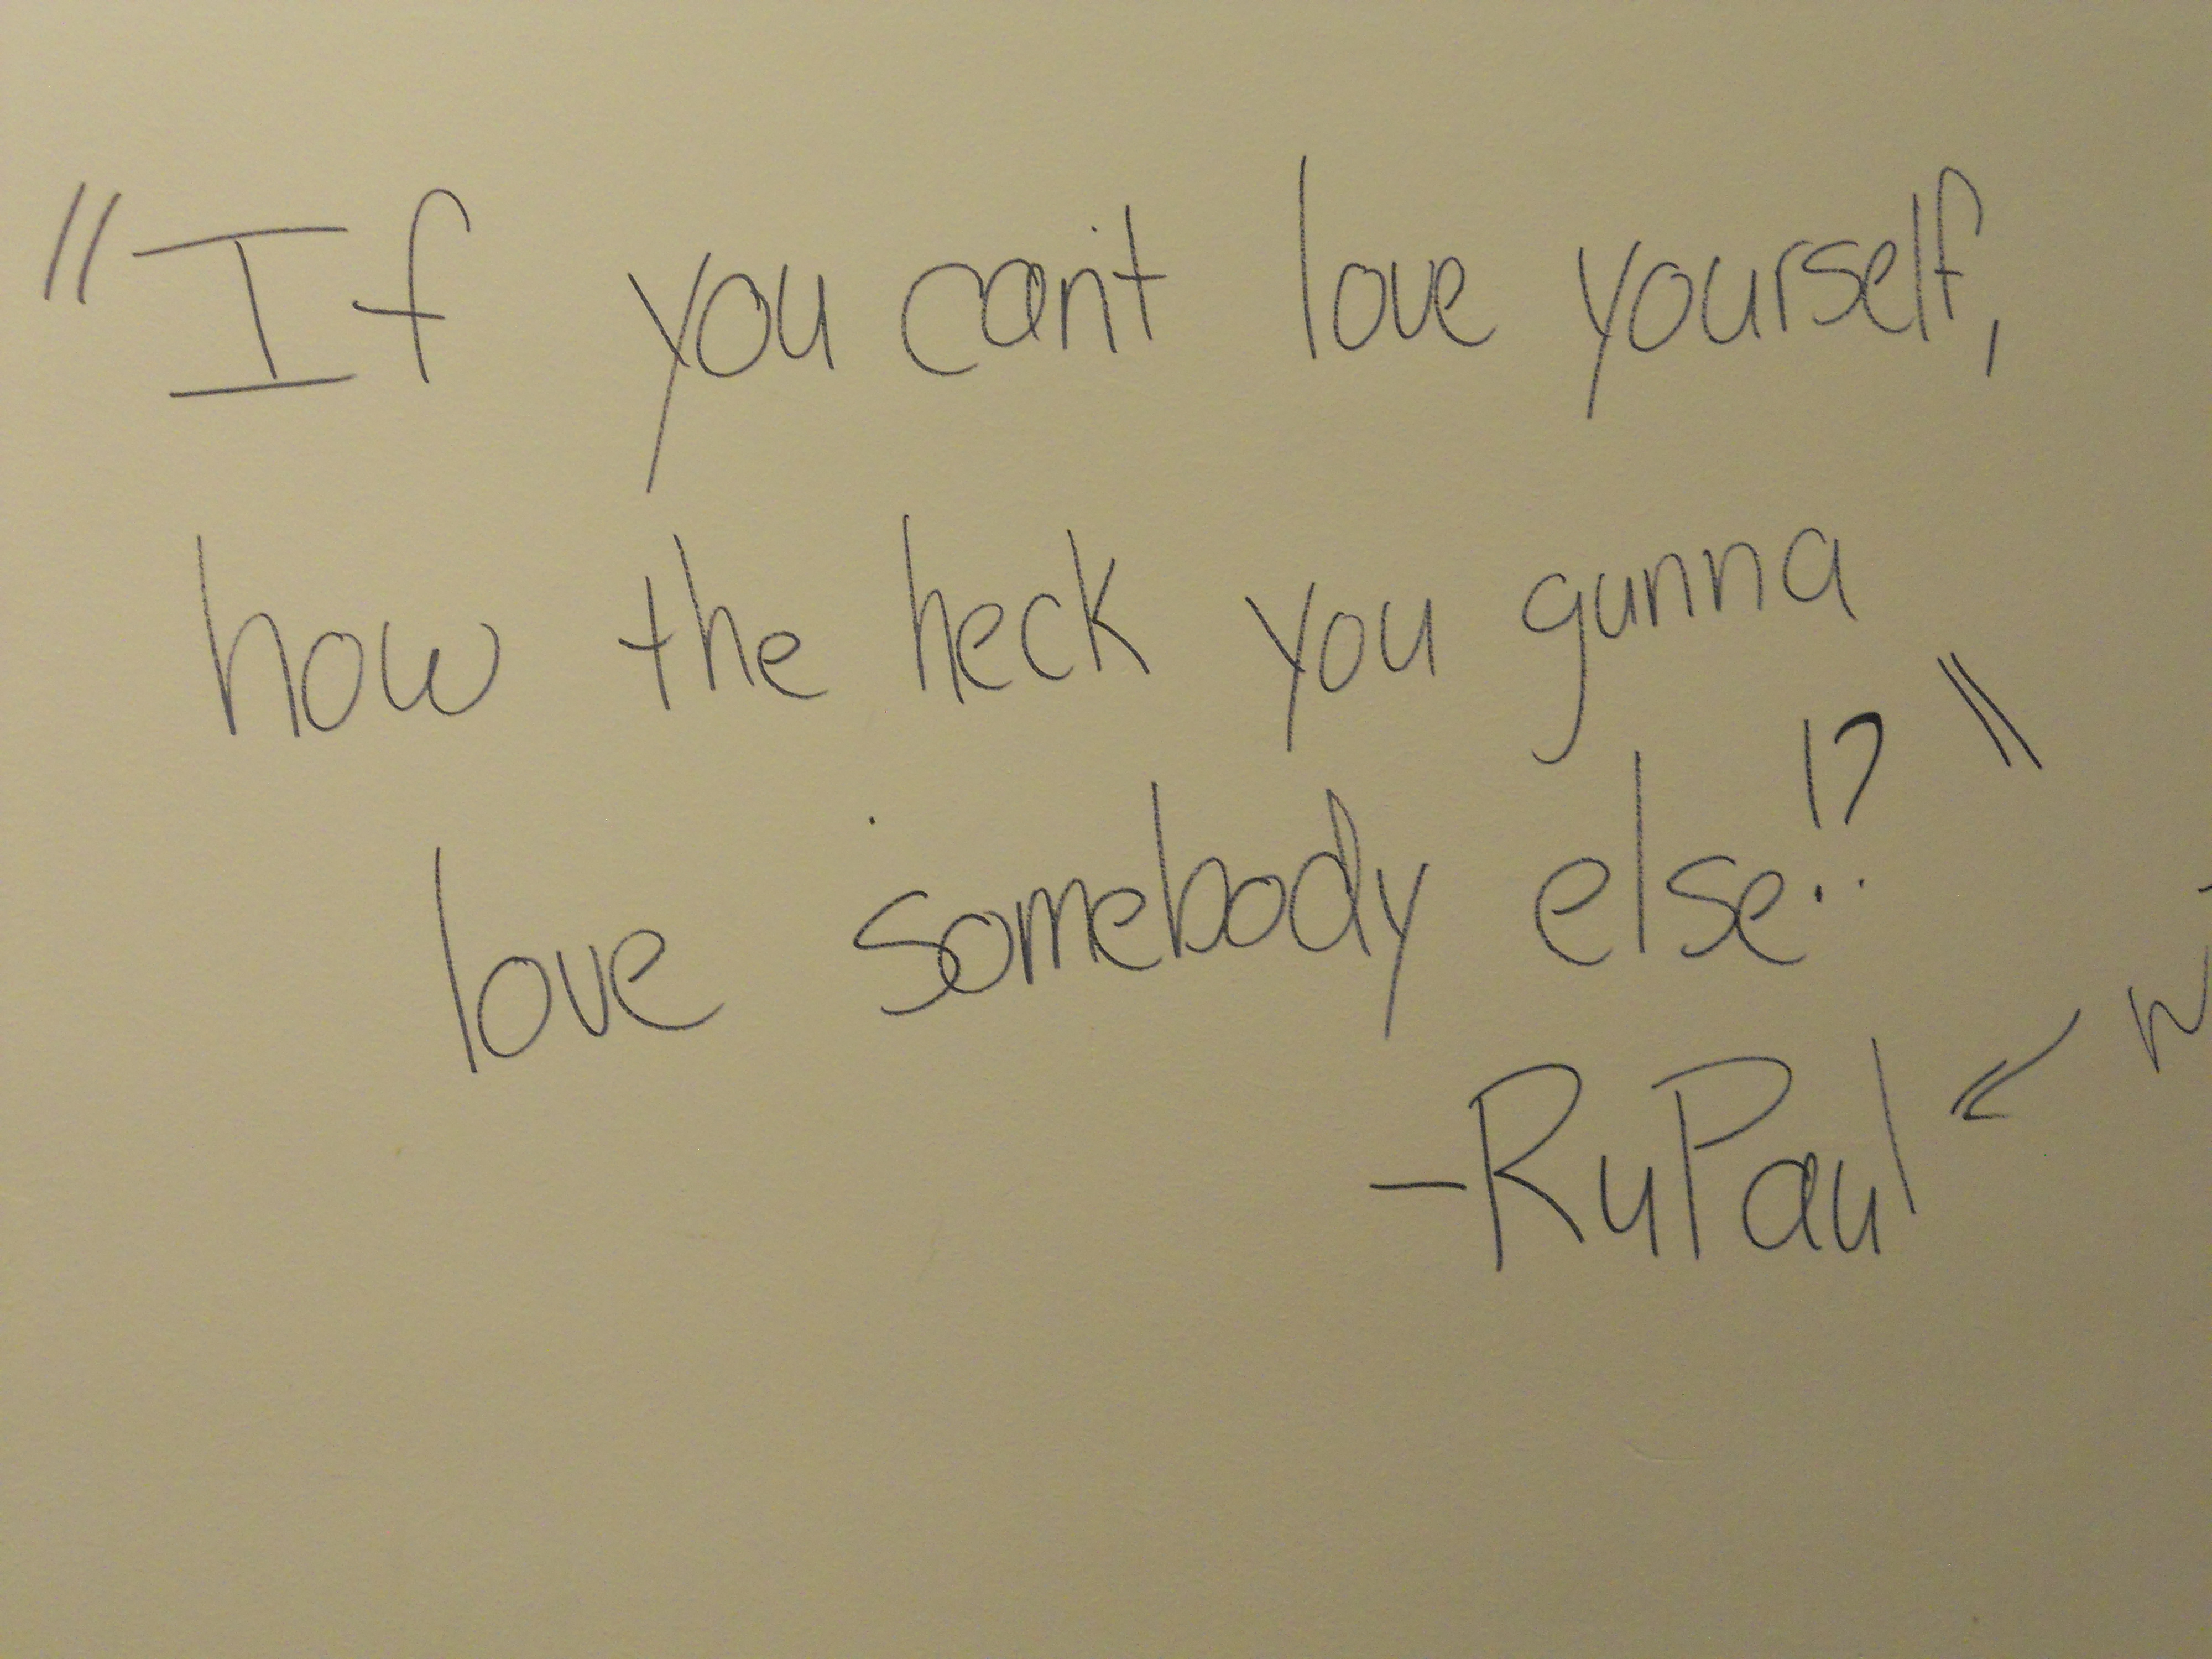 "If you can't love yourself,
how the heck you gunna
love somebody else!?"
-RuPaul